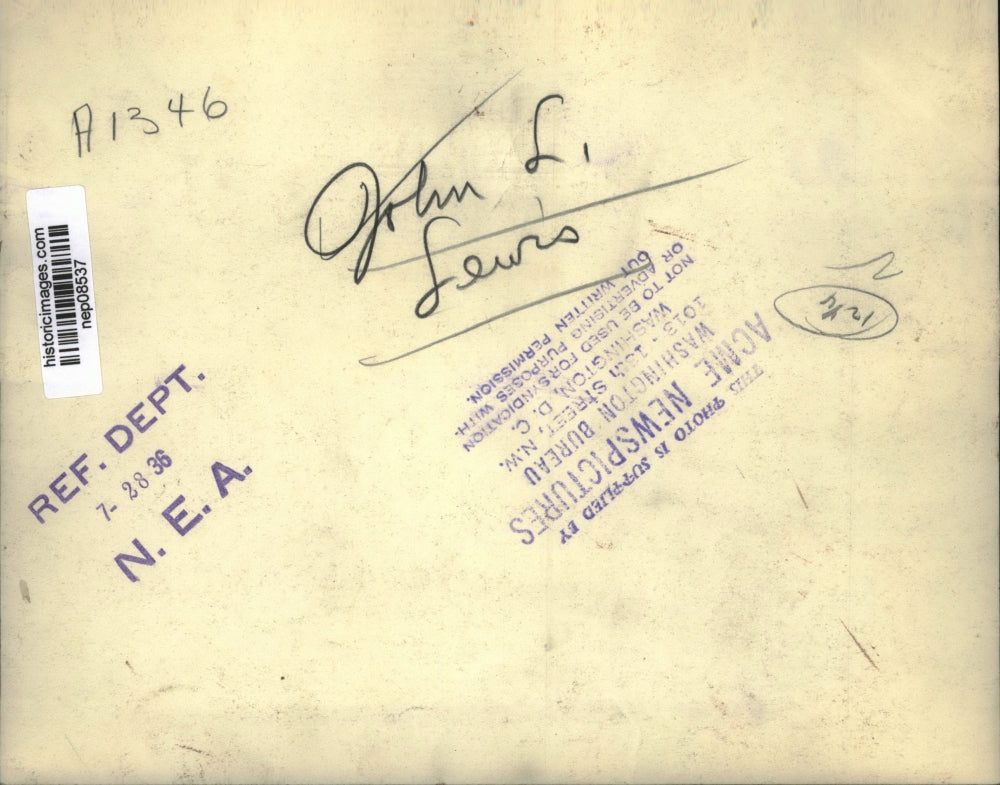 A1346
John L.
Lewis
historicimages.com
nep08537
REF. DEPT.
7- 28 36
N. E. A.
THIS PHOTO IS SUPPLIED BY
ACME NEWSPICTURES
WASHINGTON BUREAU
1013 - 13th STREET, N.W.
WASHINGTON, D. C.
NOT TO BE USED FOR SYNDICATION
OR ADVERTISING PURPOSES WITH-
OUT WRITTEN PERMISSION.